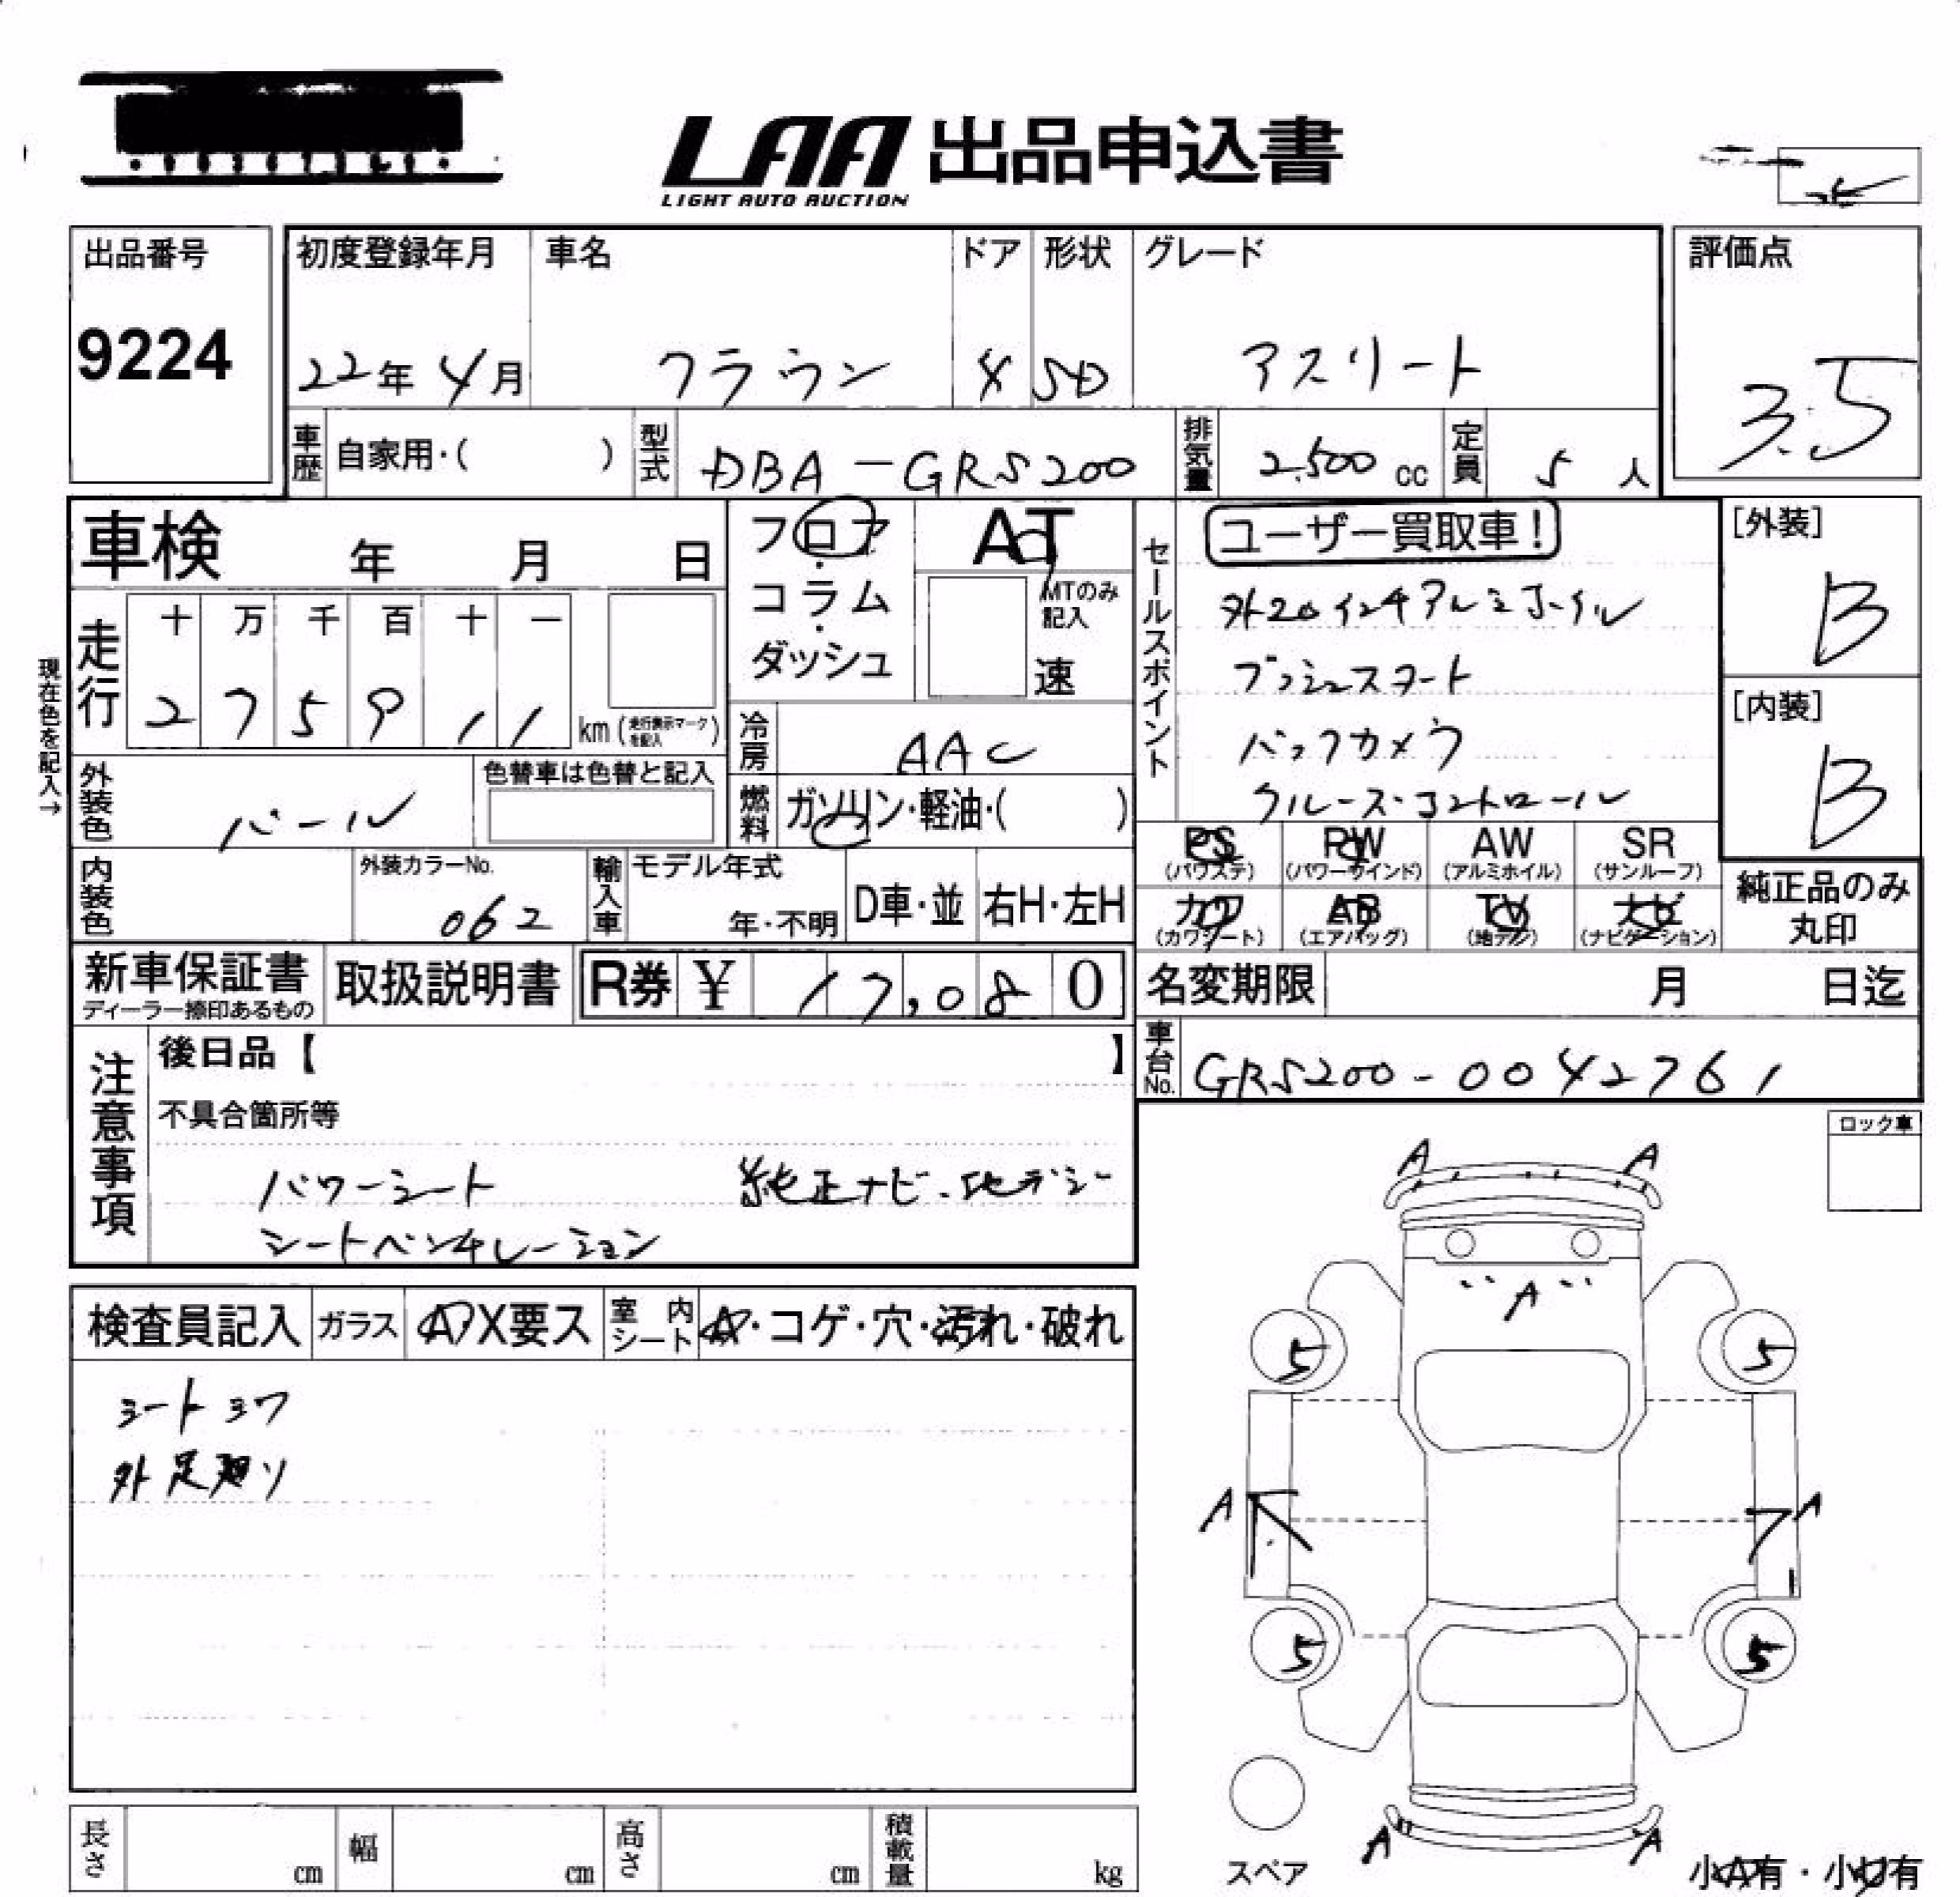 LAA 出品申込書
LIGHT AUTO AUCTION
出品番号
9224
初度登録年月
22年 4月
車名
クラウン
ドア
4
形状
SD
グレード
アスリート
評価点
3.5
車歴
自家用・( )
型式
DBA-GRS200
排気量
2.500 cc
定員
5 人
車検 年 月 日
フロア
・
コラム
・
ダッシュ
AT
MTのみ
記入
速
セールスポイント
ユーザー買取車!
外20インチアルミホイル
プッシュスタート
バックカメラ
クルーズ・コントロール
[外装]
B
[内装]
B
現在色を記入→
走行
十 万 千 百 十 一
2 7 5 9 1 1 km (走行表示マークを記入)
冷房
AAC
外装色
パール
色替車は色替と記入
燃料
ガソリン・軽油・( )
PS
(パワステ)
PW
(パワーウインド)
AW
(アルミホイル)
SR
(サンルーフ)
内装色
外装カラーNo.
062
輸入車
モデル年式
年・不明
D車・並
右H・左H
カワ
(カワシート)
AB
(エアバッグ)
TV
(地デジ)
ナビ
(ナビゲーション)
純正品のみ
丸印
新車保証書
ディーラー捺印あるもの
取扱説明書
R券 ¥ 17,080
名変期限 月 日迄
車台No.
GRS200-0042761
注意事項
後日品【 】
不具合箇所等
パワーシート 純正ナビ・地デジ
シートベンチレーション
ロック車
検査員記入
ガラス
A・X要ス
室内シート
A・コゲ・穴・汚れ・破れ
シートシワ
外足廻り
A A
A
5 5
A A
5 5
A A
スペア
小A有・小U有
長さ cm
幅 cm
高さ cm
積載量 kg